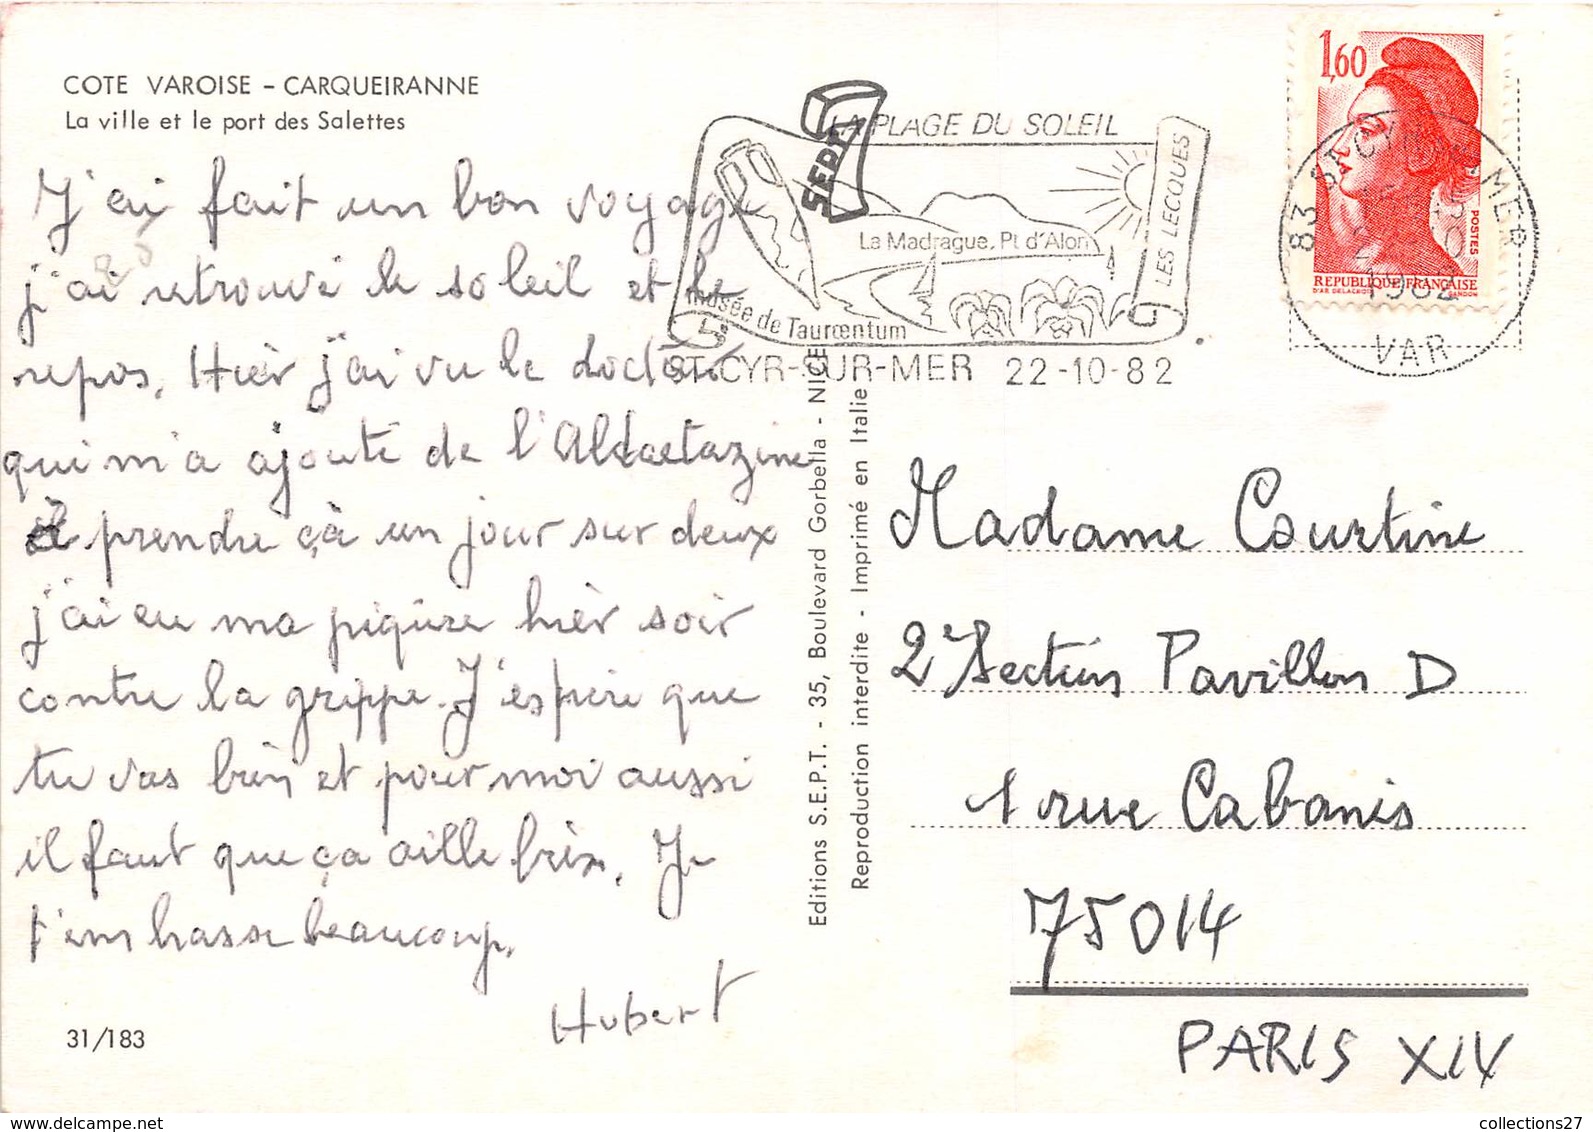 COTE VAROISE - CARQUEIRANNE
La ville et le port des Salettes
J'ai fait un bon voyage
j'ai retrouvé le soleil et le
repos. Hièr j'ai vu le docteur
qui m'a ajouté de l'Aldactazine
à prendre çà un jour sur deux
j'ai eu ma piqûre hièr soir
contre la grippe. J'espère que
tu vas bien et pour moi aussi
il faut que ça aille bien. Je
t'embrasse beaucoup.
Hubert
31/183
Editions S.E.P.T. - 35, Boulevard Gorbella - NICE
Reproduction interdite - Imprimé en Italie
SEPT
LA PLAGE DU SOLEIL
LES LECQUES
La Madrague. Pt d'Alon
musée de Tauroentum
ST-CYR-SUR-MER 22-10-82
1,60
POSTES
REPUBLIQUE FRANÇAISE
D'AP. DELACROIX GANDON
83 ST CYR MER
1982
VAR
Madame Courtine
2e Section Pavillon D
1 rue Cabanis
75014
PARIS XIV
collections27